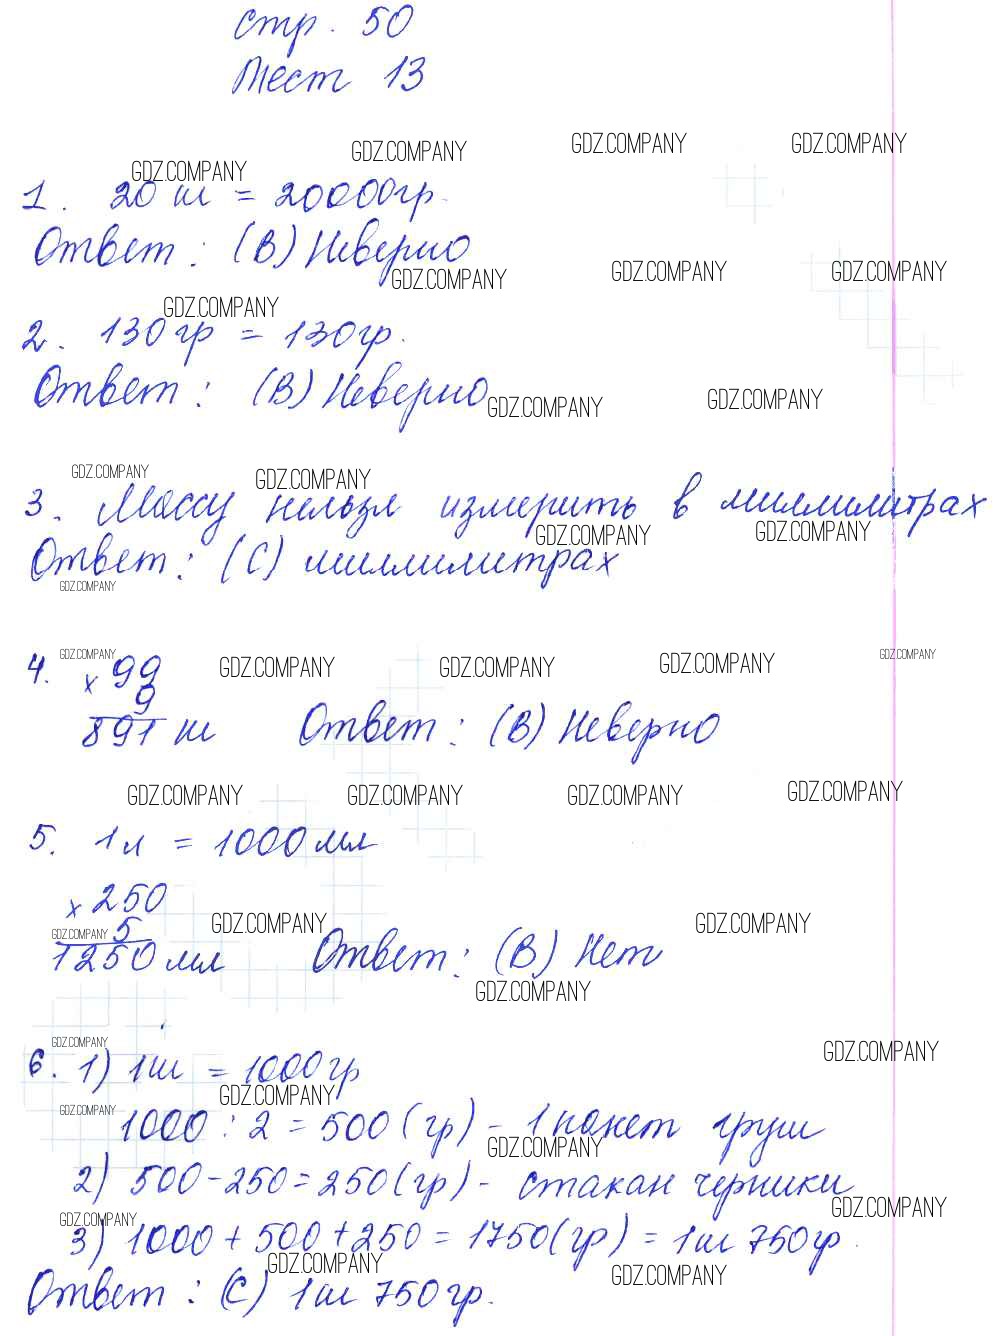 стр. 50
Тест 13
GDZ.COMPANY GDZ.COMPANY GDZ.COMPANY GDZ.COMPANY
1. 20 кг = 20000гр.
Ответ: (В) Неверно
GDZ.COMPANY GDZ.COMPANY GDZ.COMPANY
GDZ.COMPANY
2. 130 гр = 130гр.
Ответ: (В) Неверно
GDZ.COMPANY GDZ.COMPANY
GDZ.COMPANY GDZ.COMPANY
3. Массу нельзя измерить в миллилитрах
GDZ.COMPANY GDZ.COMPANY
Ответ: (С) миллилитрах
GDZ.COMPANY
GDZ.COMPANY GDZ.COMPANY GDZ.COMPANY GDZ.COMPANY GDZ.COMPANY
4. x 99
9
891 кг Ответ: (В) Неверно
GDZ.COMPANY GDZ.COMPANY GDZ.COMPANY GDZ.COMPANY
5. 1л = 1000 мл
x 250
GDZ.COMPANY 5 GDZ.COMPANY GDZ.COMPANY
1250 мл Ответ: (В) Нет
GDZ.COMPANY
GDZ.COMPANY GDZ.COMPANY
6. 1) 1кг = 1000гр
GDZ.COMPANY
GDZ.COMPANY
1000 : 2 = 500 (гр) - 1 пакет груш
GDZ.COMPANY
2) 500 - 250 = 250 (гр) - стакан черники
GDZ.COMPANY
GDZ.COMPANY
3) 1000 + 500 + 250 = 1750 (гр) = 1кг 750гр.
GDZ.COMPANY GDZ.COMPANY
Ответ: (С) 1кг 750гр.